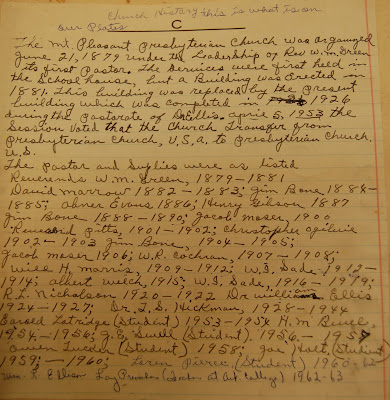 Church History this is what is on
our Plates
C
The Mt. Pleasant Presbyterian Church was organized
June 21, 1879 under the Leadership of Rev W.m. Green
its first Pastor. The Services were first held in
the School house, but a Building was Erected in
1881. This building was replaced by the present
building which was completed in 1926
during the pastorate of Dr Ellis. april 5, 1953 the
Session voted that the Church Transfer from
Presbyterian Church, U.S.A. to Presbyterian Church.
U.S.
The Pastor and Suplies were as listed
Reverends W.m. Green, 1879-1881
David marrow 1882-1883; Jim Bone 1884-
1885; abner Evans 1886; Henry Gilson 1887
Jim Bone 1888-1890; Jacob moser, 1900
Pitts, 1901-1902; Christopher ogilvie
1902-1903 Jim Bone, 1904-1905;
Jacob moser 1906; W.P. Cochran, 1907-1908;
Will H. morris, 1909-1912; W.I. Sade 1912-
1914; albert welch, 1915; W.I. Sade, 1916-1919;
P.L. Nicholson 1920-1922 Dr william Ellis
1924-1927; Dr. L.S. Hickman, 1928-1944
Latridge (Student) 1953-1954 H.m
1954-1956; J.E. (Student) 1956-1957
Owen (Student) 1958; Joe Holt, (Student)
1959; - 1960; Loren Pierce (Student) 1960-62
R Ellison (Student at Art. College) 1962-63